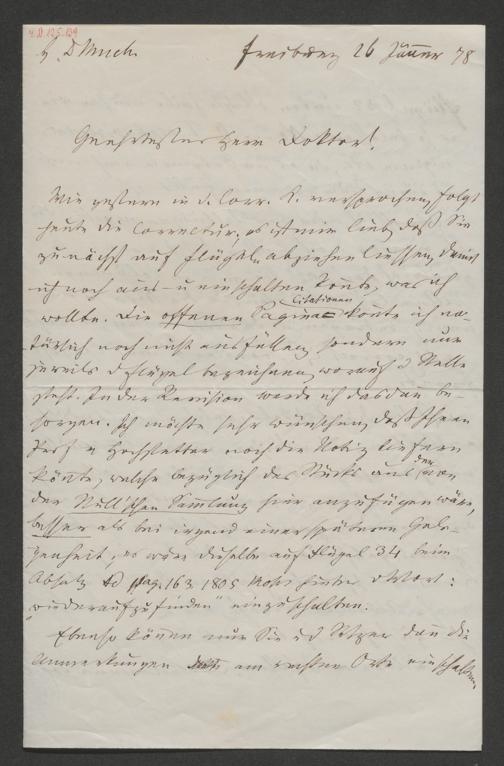 H. D Much.
Freiburg 26 Jänner 78
Geehrtester Herr Doktor!
Wie gestern in d. Corr. K. versprochen, folgt
heute die Correctur, es ist mir lieb, daß Sie
zunächst auf Flügel abziehen liessen, damit
ich noch aus- u einschalten konte, was ich
wollte. Die offenen Citationen Pagina konte ich na-
türlich noch nicht ausfüllen, sondern nur
jeweils d Flügel bezeichnen, wo auch d Stelle
steht. In der Revision werde ich das dan be-
sorgen. Ich möchte sehr wünschen, daß Ihnen
Prof v Hochstetter noch die Notiz liefern
könte, welche bezüglich des Stücks aus der von
der Null'schen Samlung hier anzufügen wäre,
besser als bei irgend einer späteren Gele-
genheit, es wäre dieselbe auf Flügel 34 beim
Absatz ad pag. 163 1805 Mohs hinter d Wort:
"wiederaufzufinden" einzuschalten.
Ebenso können nur Sie u d Setzer dan die
Anmerkungen am rechten Orte einschalten,